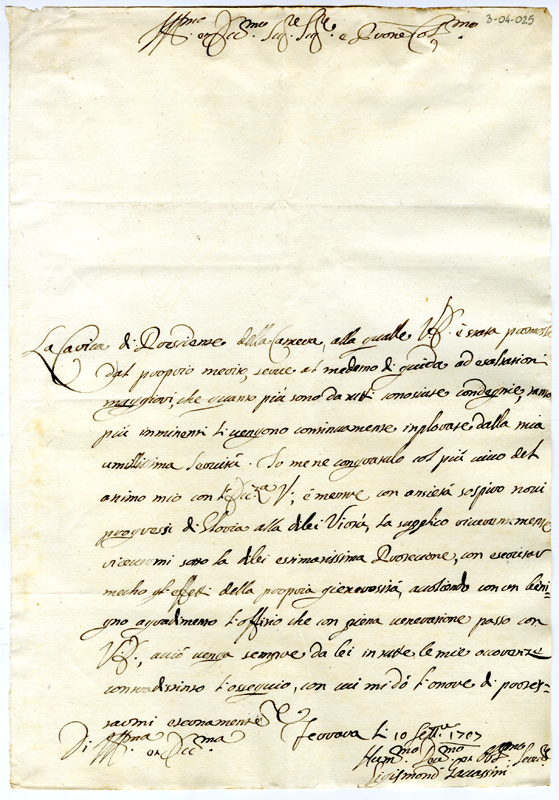 3-04-025
Ill.mo et Ecc.mo Sig.re Sig.re e Prone Col.mo
La Carica di Presidente della Camera, alla qualle V.E. è stata promossa
dal proprio merito, serve al medemo di guida ad esaltationi
maggiori, che quanto più sono da tutti conosciute condegne, tanto
più imminenti li vengono continuamente implorate dalla mia
umilissima Servitù. Io me ne congratulo col più vivo del
animo mio con l'Ecc.za V., e mentre con ansietà sospiro novi
progressi di Gloria alla dilei Virtù, la supplico riverentemente
ricevermi sotto la dilei estimatissima Protectione, con esercitar
mecho gl'effetti della propria generosità, acogliendo con un beni-
gno agradimento l'offitio che con piena veneratione passo con
V.E., acciò venga sempre da lei in tutte le mie occorenze
contradistinto l'ossequio, con cui mi dò l'onore di protes-
tarmi eternamente
Di V.E. Ferrara li 10 Sett.re 1707
Ill.ma et Ecc.ma
Hum.mo Dev.mo et Obl.mo Servit.
Sigismond